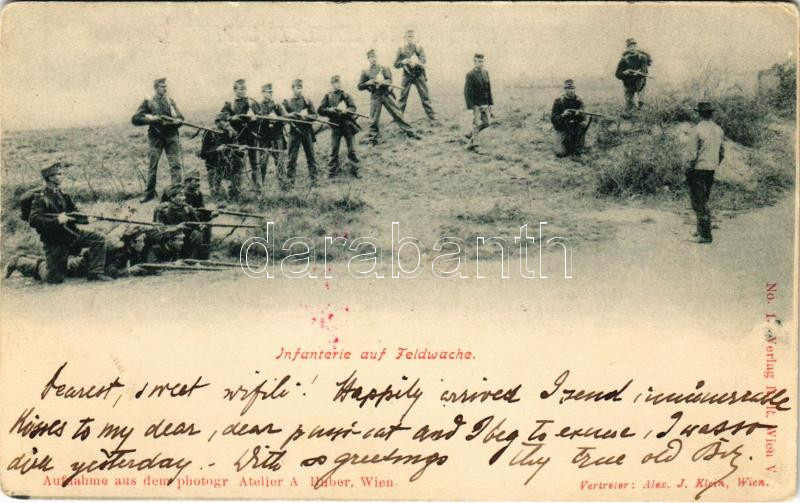 darabanth
Infanterie auf Feldwache.
No. 1. Verlag Wien V
Dearest, sweet wifili! Happily arrived I send innumerable
kisses to my dear, dear pussi-cat and I beg to excuse, I was so
yesterday. - With greetings thy true old
Aufnahme aus dem photogr Atelier A Huber, Wien.
Vertreter: Alex. J. Klein, Wien.